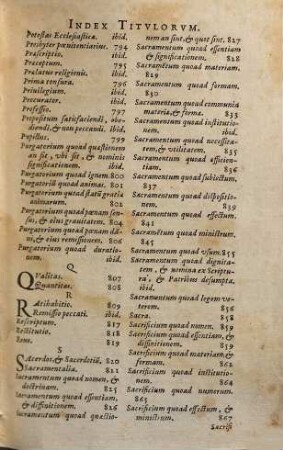 INDEX TITVLORVM.
Potestas Ecclesiastica. ibid.
Presbyter pœnitentiarius. 794
Præscriptio. ibid.
Præceptum. 795
Prælatus religionis. ibid.
Prima tonsura. ibid.
Priuilegium. ibid.
Procurator. ibid.
Professio. ibid.
Propositum satisfaciendi, obediendi,
& non peccandi. ibid.
Pupillus. 799
Purgatorium quoad quæstionem
an sit, vbi sit, & nominis
significationem. ibid.
Purgatorium quoad ignem. 800
Purgatoriũ quoad animas. 801
Purgatorium quoad statũ gratia
animarum. 802
Purgatorium quoad pœnam sensus,
& eius grauitatem. 804
Purgatorium quoad pœnam dãni,
& eius remissionem. 806
Purgatorium quoad durationem.
ibid.
Q
Qualitas. 807
Quantitas. 808
R
Ratihabitio. 809
Remissio peccati. ibid.
Rescriptum. 817
Restitutio. 818
Reus. 819
S
Sacerdos, & Sacerdotiũ. 820
Sacramentalia. 821
Sacramentum quoad nomen, &
doctrinam. 825
Sacramentum quoad essentiam
& diffinitionem. 826
Sacramentum quoad quæstionem
an sint, & quot sint. 827
Sacramentum quoad essentiam
& significationem. 828
Sacramẽtum quoad materiam.
829
Sacramentum quoad formam.
830
Sacramentum quoad communia
materia, & forma. 832
Sacramentum quoad institutionem.
ibid.
Sacramentum quoad necessitatem,
& vtilitatem. 835
Sacramentum quoad efficientiam.
ibid.
Sacramentum quoad subiectum.
837
Sacramentum quoad dispositionem.
839
Sacramentum quoad effectum.
841
Sacramẽtum quoad ministrum.
845
Sacramentum quoad vsum. 855
Sacramentum quoad dignitatem,
& nomina ex Scriptura,
& Patribus desumpta.
ibid.
Sacramentum quoad legem veterem.
ibid.
Sacra. 858
Sacrificium quoad nomen. 859
Sacrificium quoad essentiam, &
diffinitionem. 859
Sacrificium quoad materiam, &
formam. 861
Sacrificium quoad numerum.
865
Sacrificium quoad effectum, &
ministrum. 867
Sacrificium quoad institutio-
Sacrifi